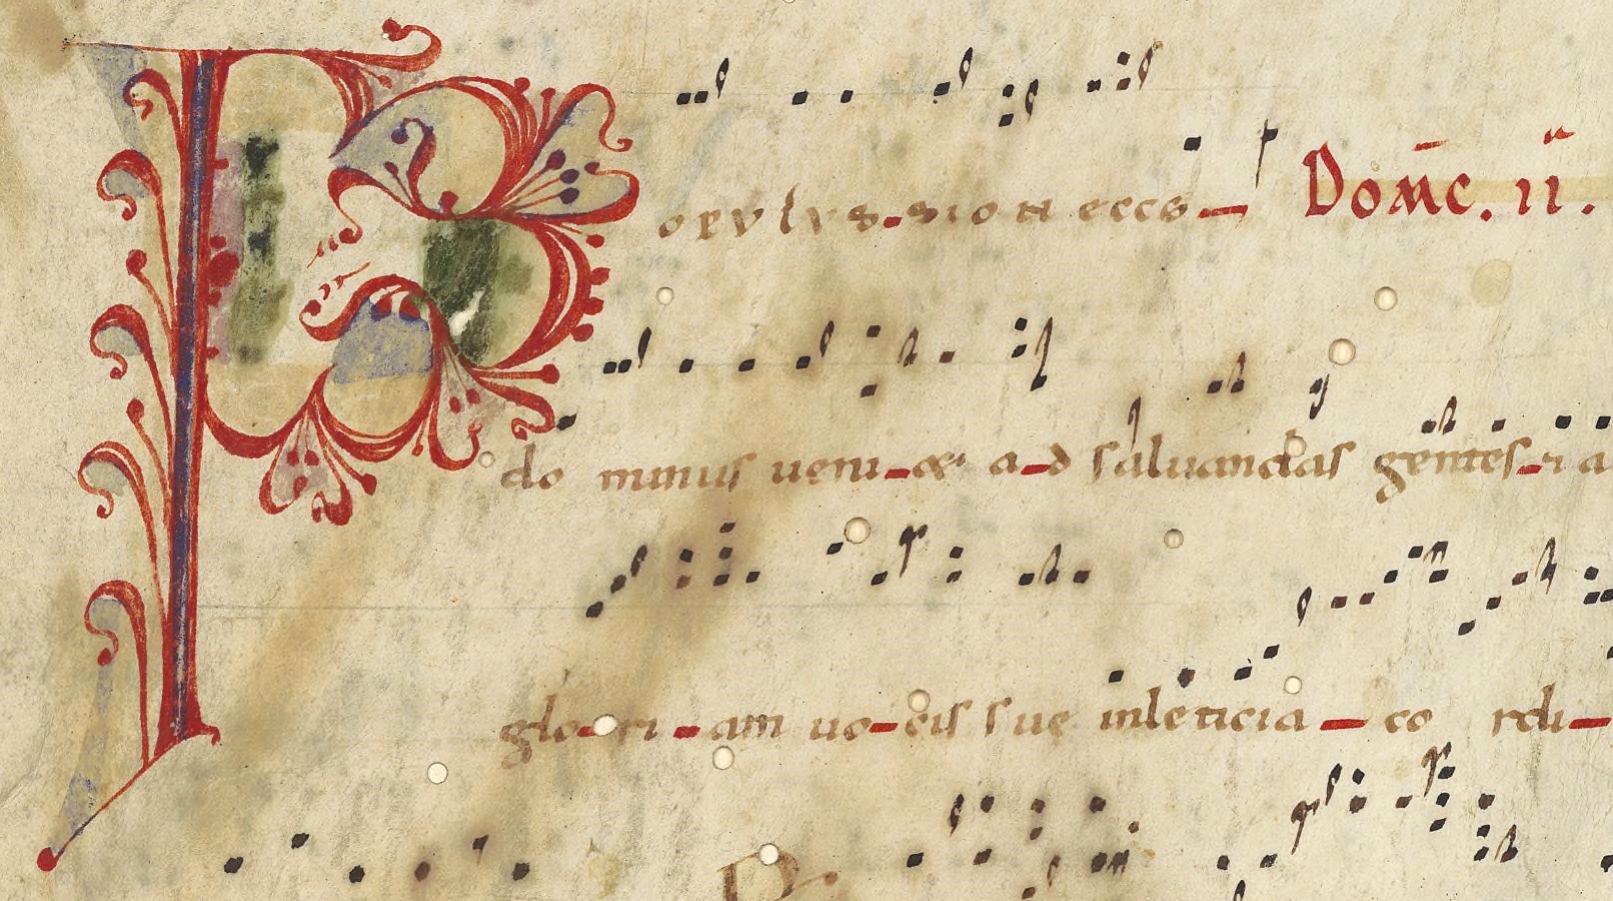 P opulus sion ecce Domc. ii.
do minus veni et ad salvandas gentes
glo ri am vo cis sue in leticia co rdi